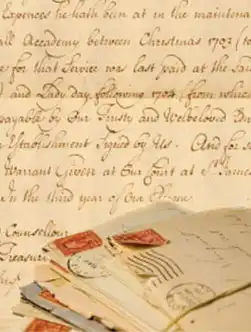 Expences he hath been at in the maintena
all Accademy between Christmas 1703 (to
e for that Service was last paid at the sa
) and Lady day following 1704, from which
payable by Our Trusty and Welbeloved Our
s Establishment Signed by Us. And for so
Warrant Given at Our Court at St James
In the third year of Our Reigne
Counsellour
Treasur